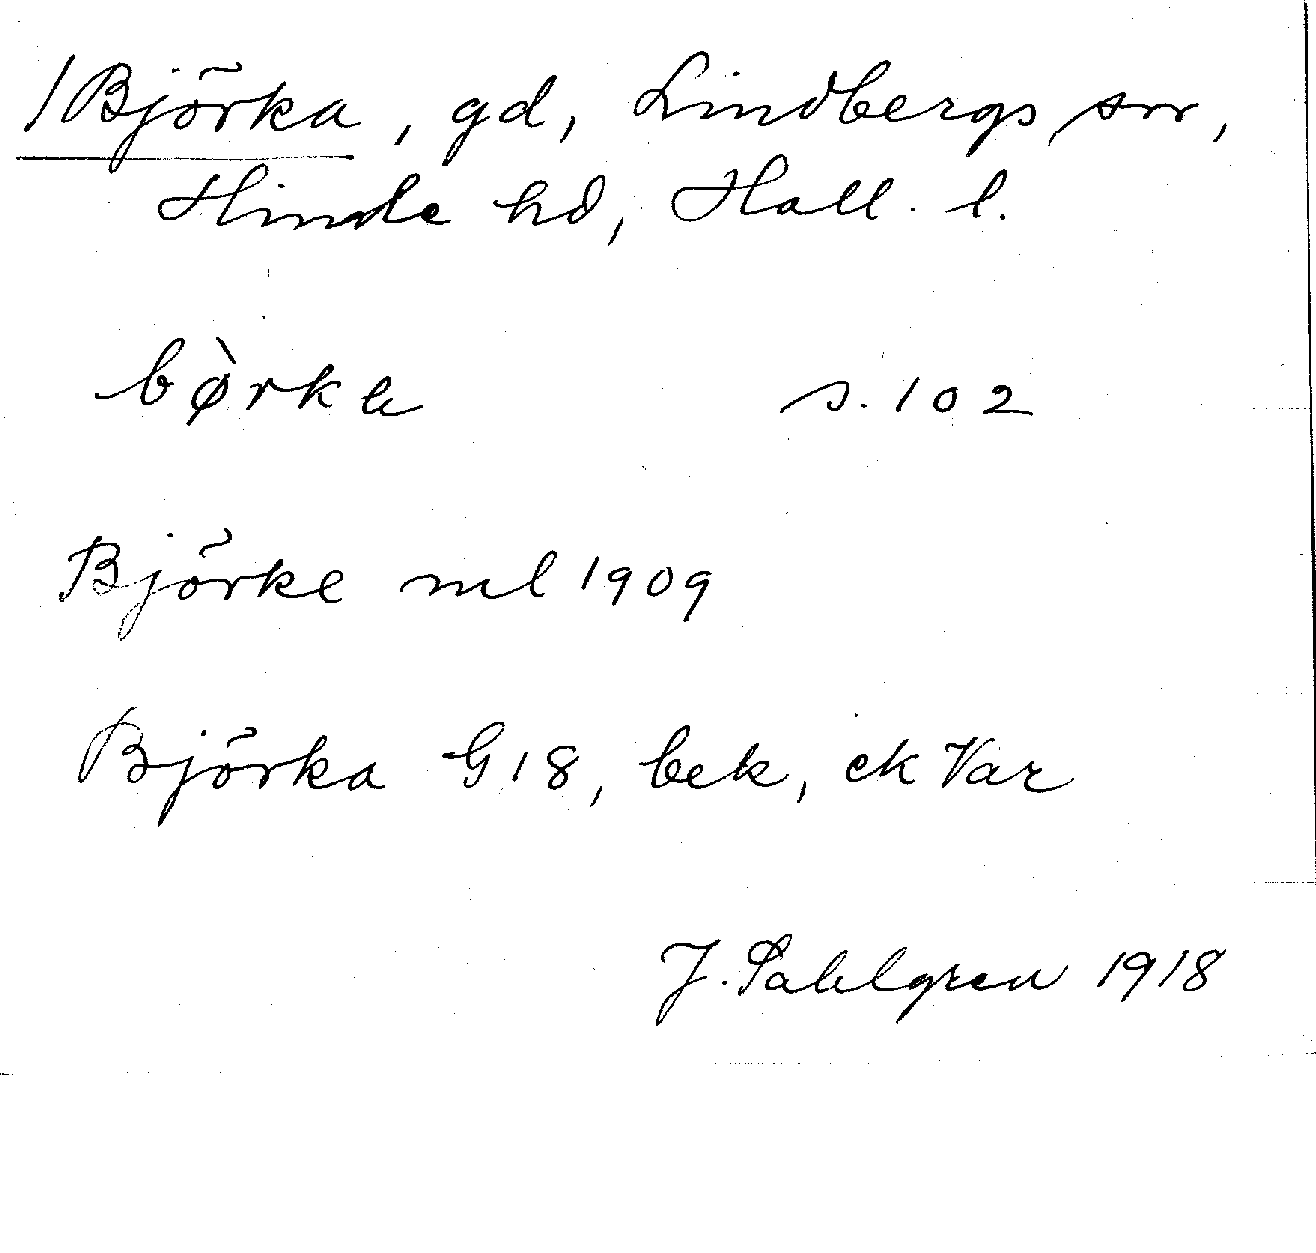 /Björka, gd, Lindbergs sn,
Himle hd, Hall. l.
bø̀rka s. 102
Björke ml 1909
Björka G18, bek, ek Var
J. Sahlgren 1918